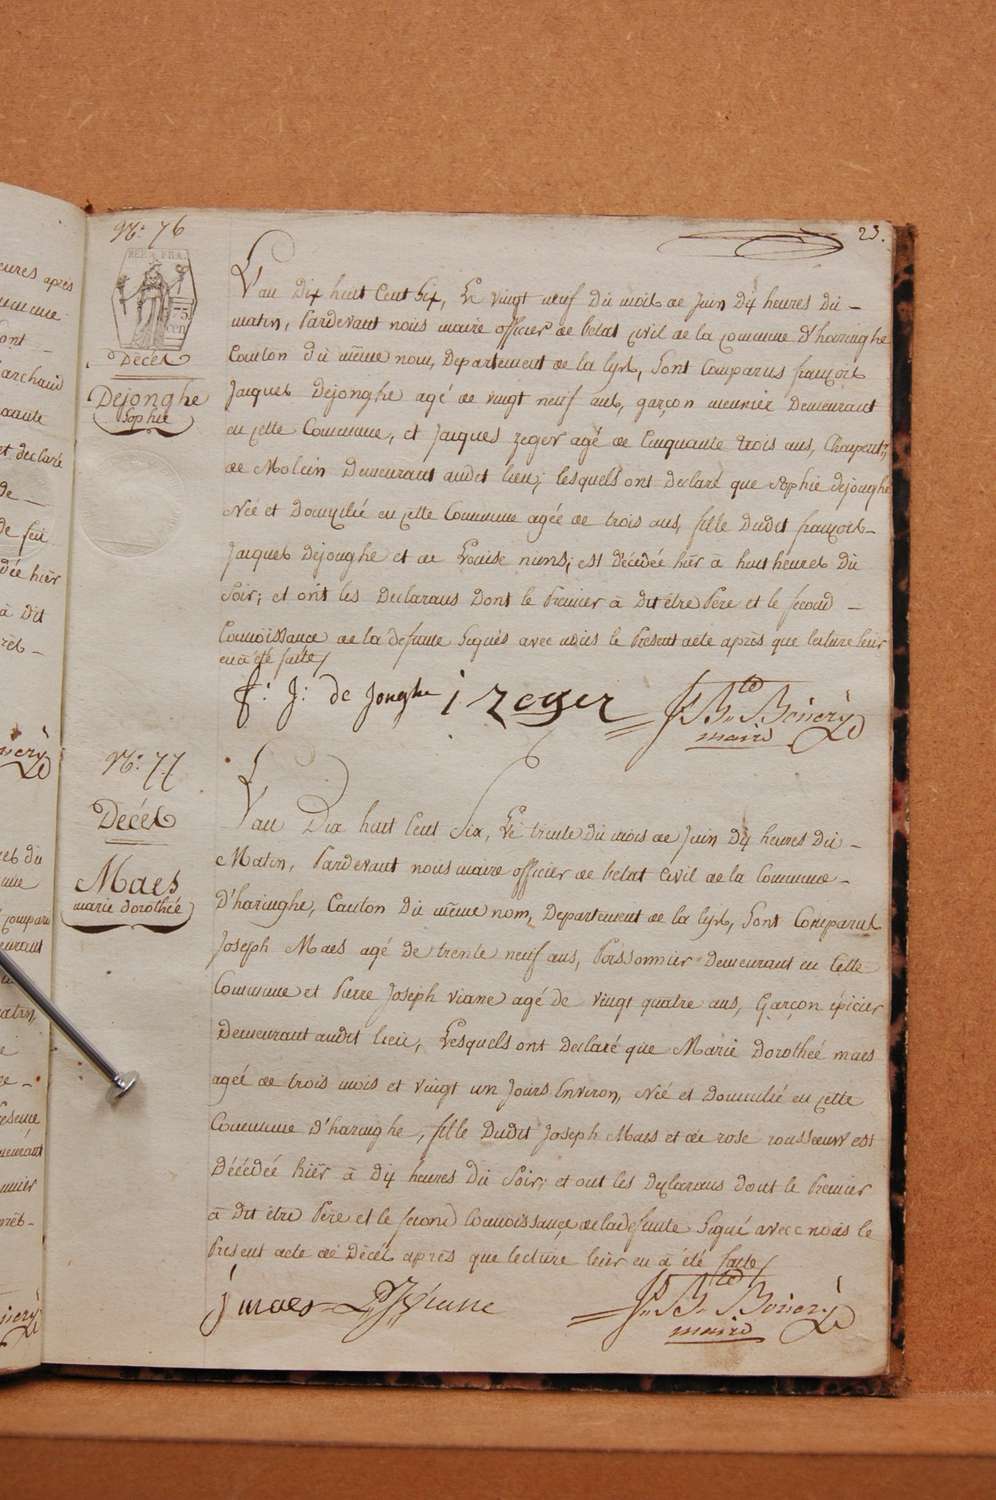 23.
N.o 76
REP. FRA.
75
cen
Décès
Dejonghe
Sophie
L'an Dix huit Cent Six, Le vingt neuf Du mois de Juin Dix heures Du
matin, Pardevant nous maire officier de l'etat civil de la commune d'haringhe
Canton du même nom, Departement de la lys, Sont Comparus françois
Jacques Dejonghe agé de vingt neuf ans, garçon meunier Demeurant
en cette Commune, et Jacques zeger agé de Cinquante trois ans, Charpentr
de Molein Demeurant audit lieu; lesquels ont Declaré que Sophie dejonghe
Née et Domicilié en cette Commune agée de trois ans, fille Dudit françois
Jacques Dejonghe et de Louise nuns, est Décédée hier à huit heures Du
Soir; et ont les Declarans Dont le Premier à Dit être Père et le second
Connoissance de la defunte Signés avec nous le Present acte après que lecture leur
en a été faite/
f: J: de Jonghe j zeger
maire
N.o 77
Décès
Maes
marie dorothée
L'an Dix huit Cent Six, Le trente du mois de Juin Dix heures Du
Matin, Pardevant nous maire officier de l'etat Civil de la Commune
D'haringhe, Canton Du même nom, Departement de la lys, Sont Comparus
Joseph Maes agé De trente neuf ans, Poissonnier Demeurant en Cette
Commune et Pierre Joseph viane agé de vingt quatre ans, Garçon épicier
Demeurant audit lieu, Lesquels ont Declaré que Marie Dorotheé maes
ageé de trois mois et vingt un Jours Environ, Née et Domicilié en cette
Commune D'haringhe, fille Dudit Joseph Maes et de rose rousseeuw est
Décédée hier à Dix heures Du Soir; et ont les Declarans dont le Premier
à Dit être Père et le second Connoissance de la defunte Signé avec nous le
Present acte de Décès après que lecture leur en à été faite/
j maes PJ Viane
maire